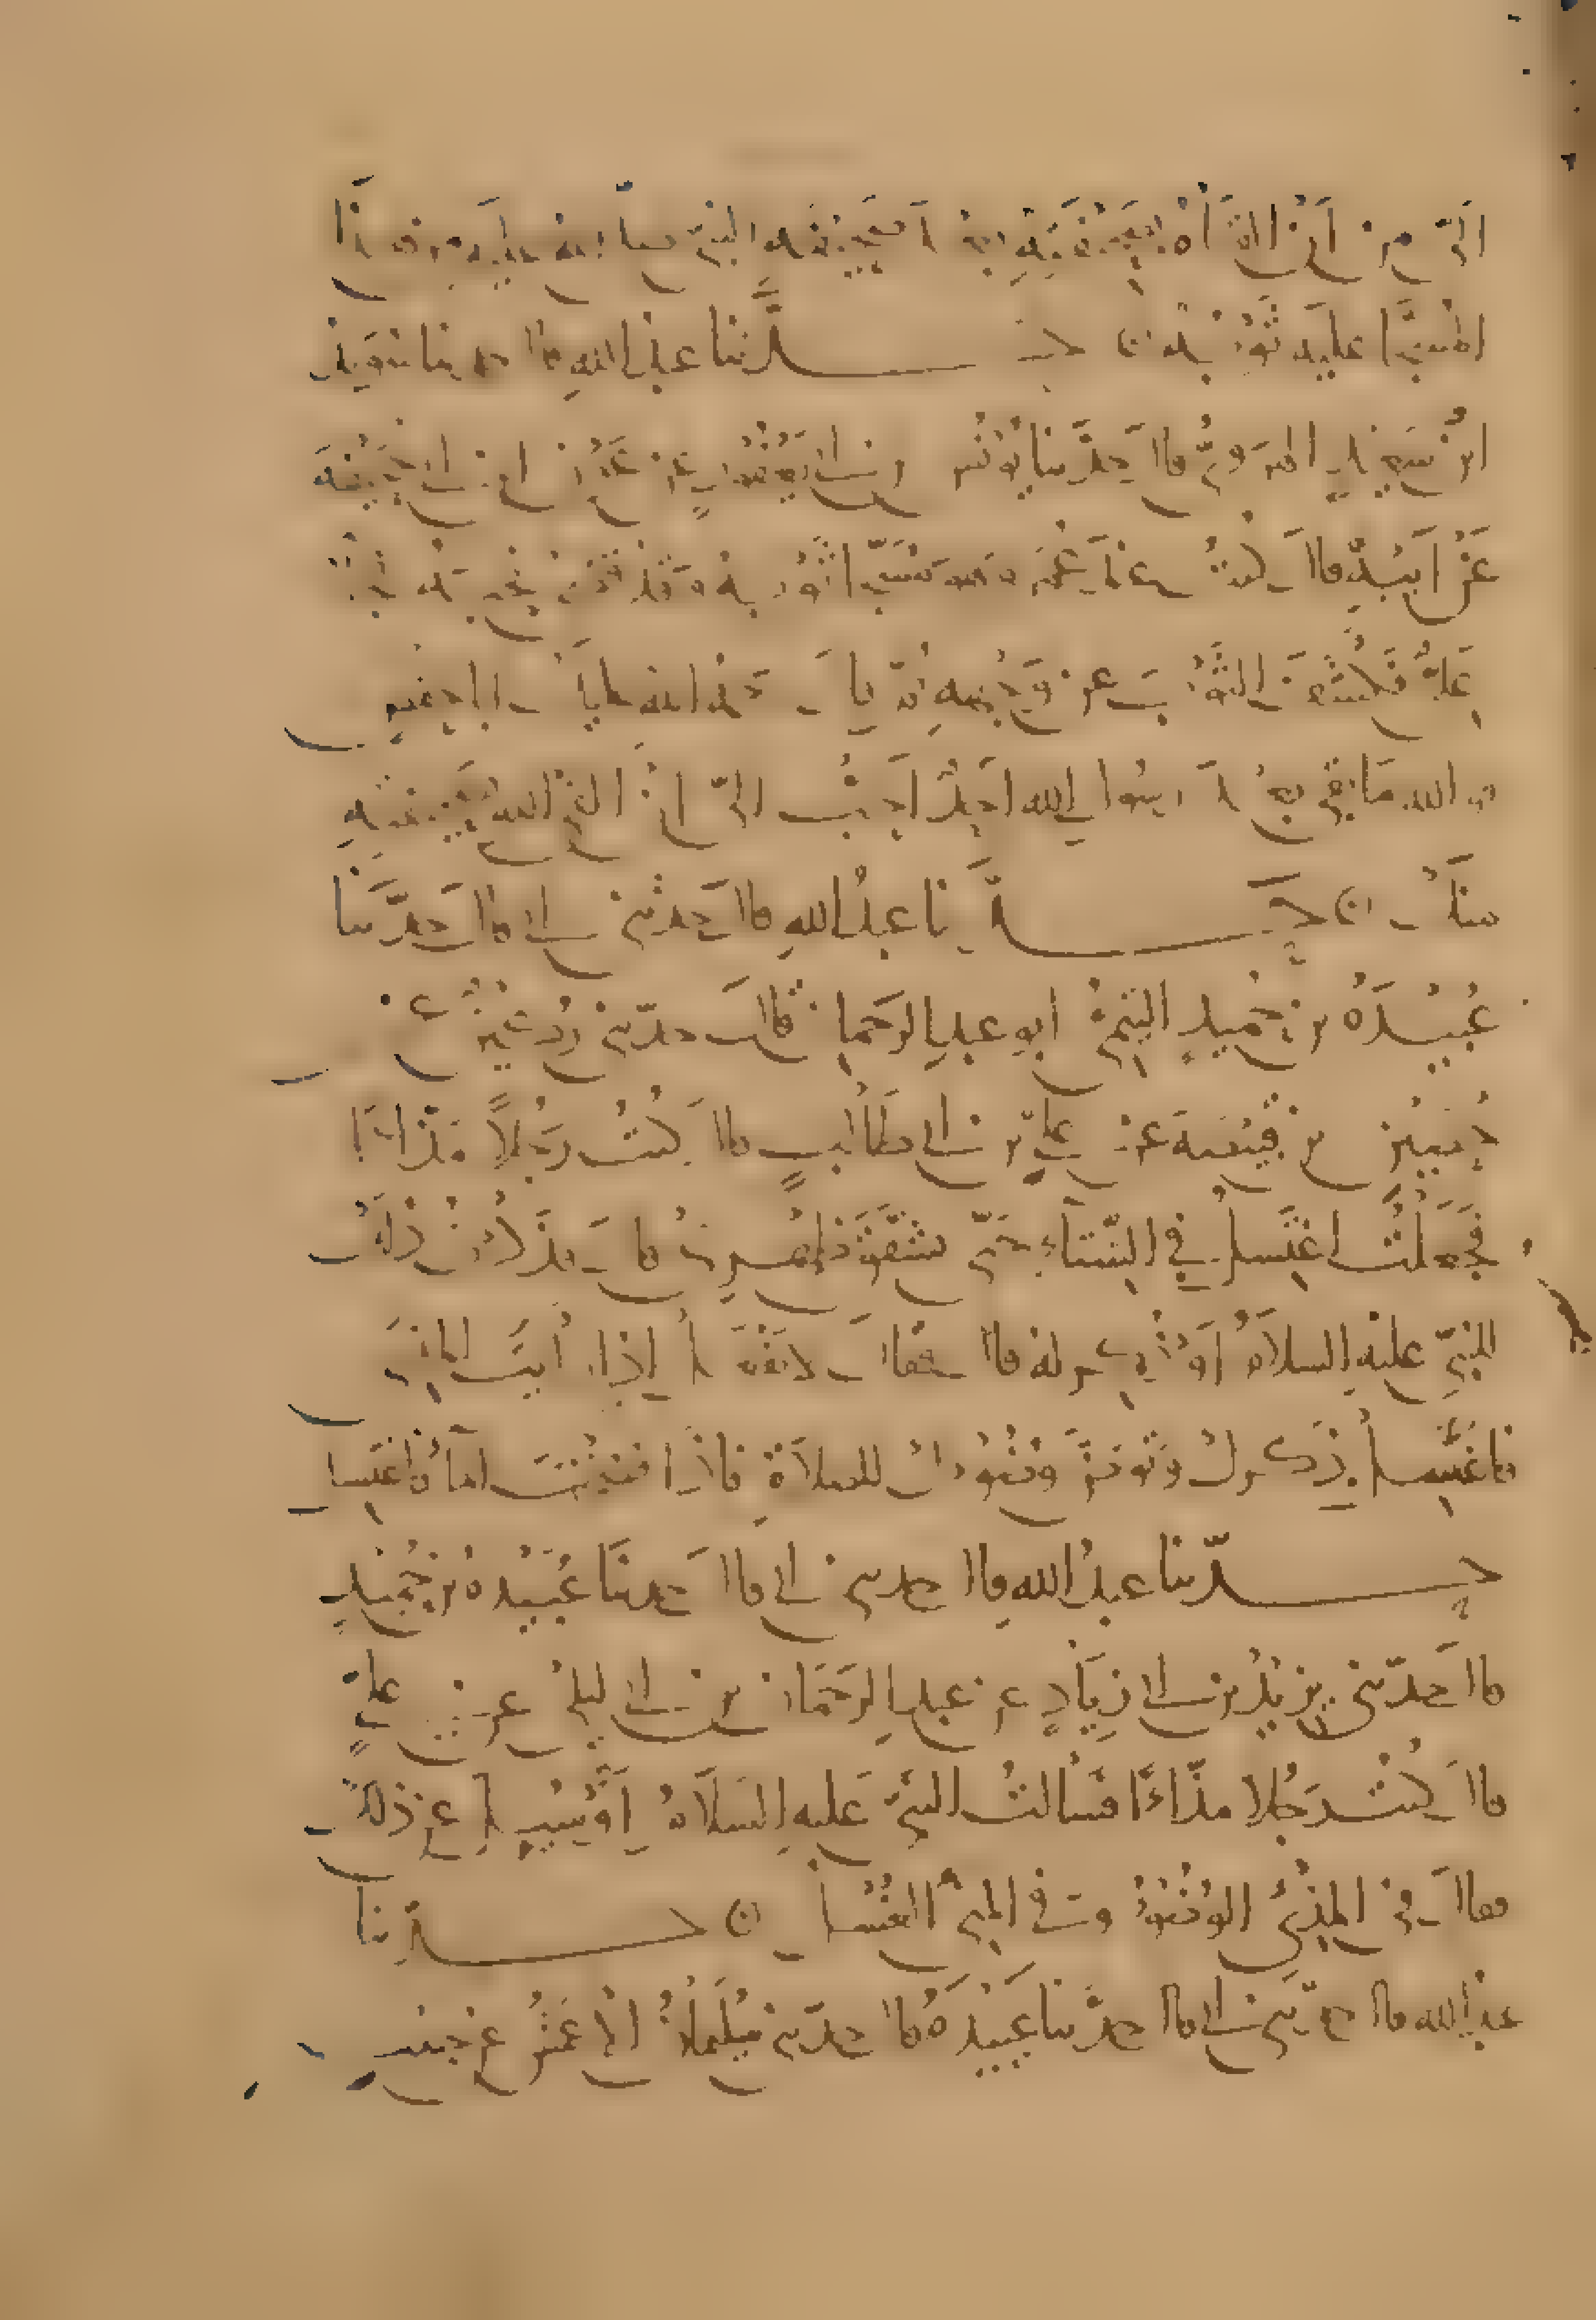 الي من ان القاه بصحيفته بعد صحيفة النبي صلى الله عليه من هذا
المسجا عليه ثوبه ن حدثنا عبد الله قال حدثنا سويد
ابن سعيد الهروي قال حدثنا يونس بن ابي يعفور عن عون ابن ابي جحيفة
عن ابيه قال كنت عند عمر وهو مسجا ثوبه قد قضى نحبه فجا
علي فكشف الثوب عن وجهه ثم قال رحمة الله عليك ابا حفص
فو الله ما بقي بعد رسول الله احد احب الي ان القى الله بصحيفته
منك ن حدثنا عبد الله قال حدثني ابي قال حدثنا
عبيدة بن حميد التيمي ابو عبد الرحمان قال حدثني ركين عن
حصين بن قبيصة عن علي بن ابي طالب قال كنت رجلا مذاءا
فجعلت اغتسل في الشتاء حتى تشقق ظهري قال فذكرت ذلك
للنبي عليه السلام او ذكر له قال فقال لا تفعل اذا رايت المذي
فاغسل ذكرك وتوضا وضوءك للصلاة فاذا فضخت الماء فاغتسل
حدثنا عبد الله قال حدثني ابي قال حدثنا عبيدة بن حميد
قال حدثني يزيد بن ابي زياد عن عبد الرحمان بن ابي ليلى عن علي
قال كنت رجلا مذاءا فسالت النبي عليه السلام او سئل عن ذلك
فقال في المذي الوضوء وفي المني الغسل ن حدثنا
عبد الله قال حدثني ابي قال حدثنا عبيدة قال حدثني سليمان الاعمش عن حبيب